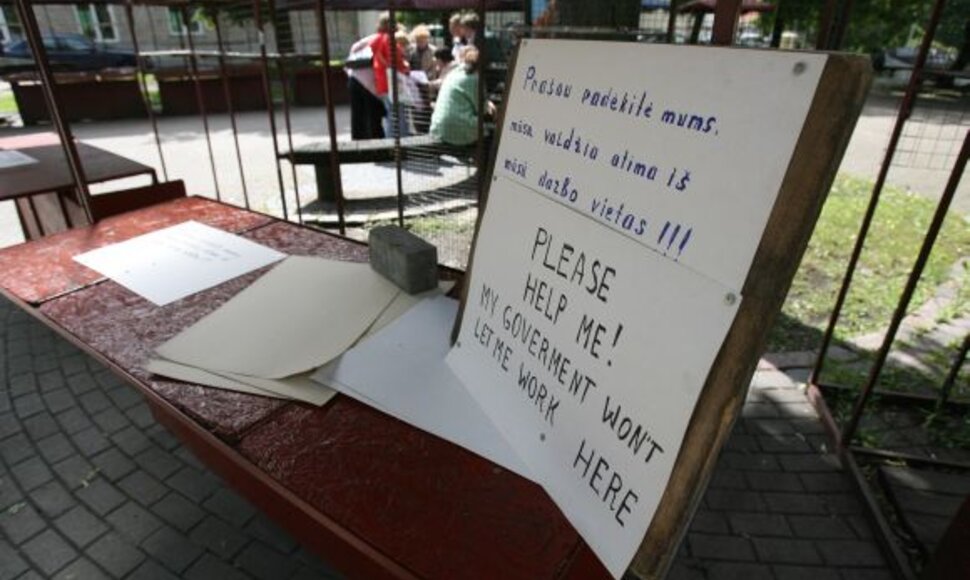 Prašau padėkitė mums,
mūsų valdžia atima iš
mūsų darbo vietas !!!
PLEASE
HELP ME!
MY GOVERMENT WON'T
LET ME WORK
HERE